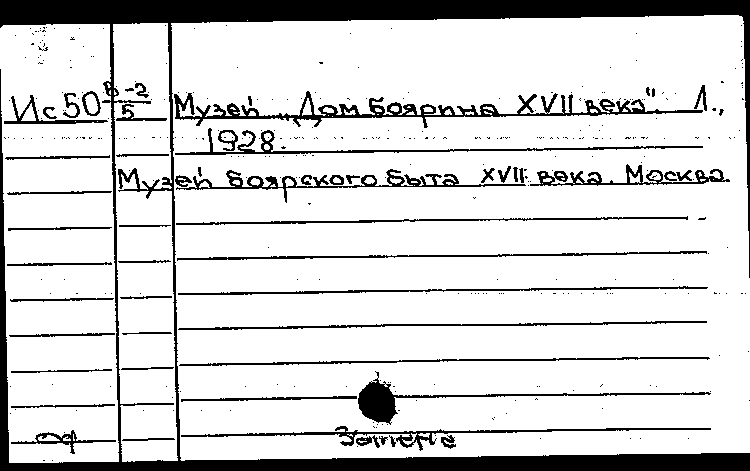 Ис50 В-2/5 Музей „Дом боярина XVII века". Л.,
1928.
Музей боярского быта XVII века. Москва.